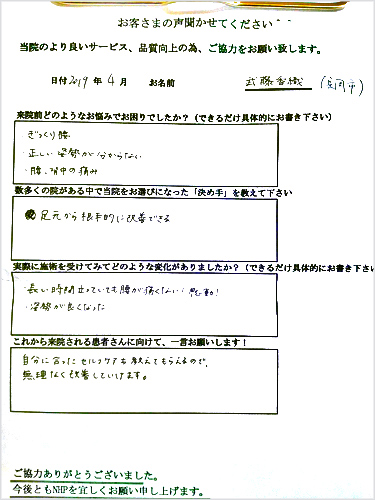 お客さまの声聞かせてください^^
当院のより良いサービス、品質向上の為、ご協力をお願い致します。
日付 2019 年 4 月 お名前 武藤香織 (長岡市)
来院前どのようなお悩みでお困りでしたか？（できるだけ具体的にお書き下さい）
ぎっくり腰
・正しい姿勢が分からない
・腰、背中の痛み
数多くの院がある中で当院をお選びになった「決め手」を教えて下さい
足元から根本的に改善できる
実際に施術を受けてみてどのような変化がありましたか？（できるだけ具体的にお書き下さい
・長い時間立っていても腰が痛くない！感動！
・姿勢が良くなった
これから来院される患者さんに向けて、一言お願いします！
自分に合ったセルフケアも教えてもらえるので、
無理なく改善していけます。
ご協力ありがとうございました。
今後ともNHPを宜しくお願い申し上げます。